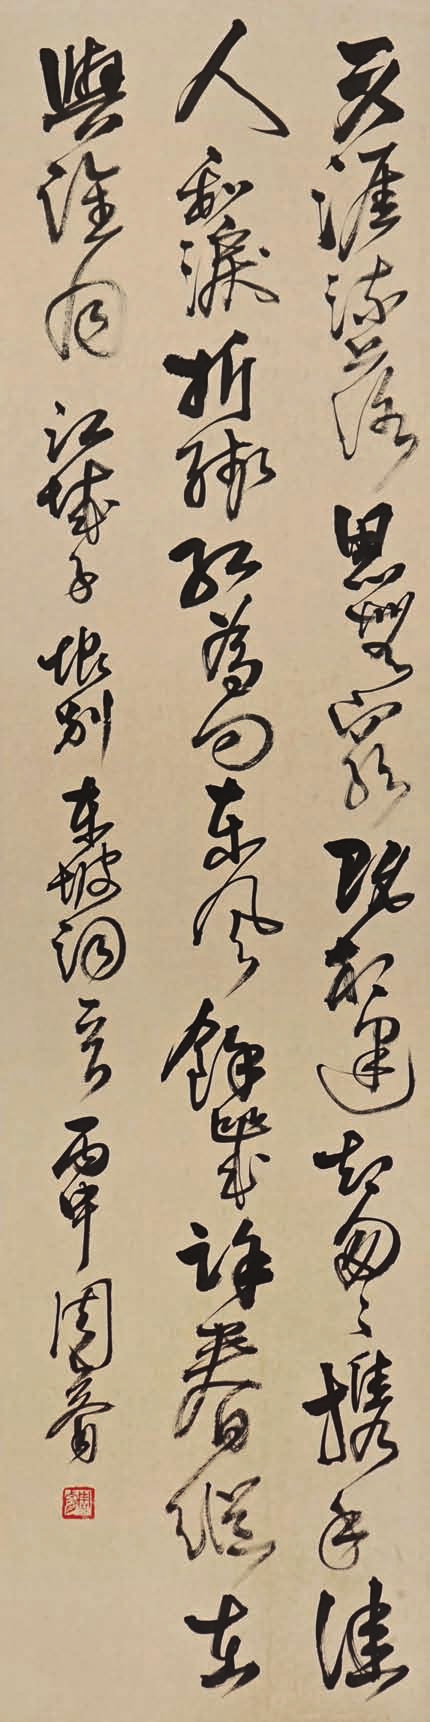 天涯流落思無窮既相逢却匆々攜手佳
人和淚折殘紅為問東風餘幾許春縱在
與誰同 江城子 恨別 東坡詞一首 丙申 周